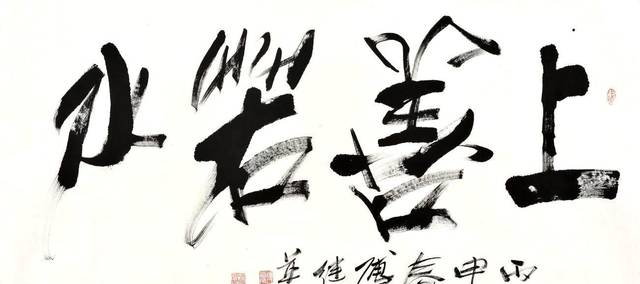 上善若水
丙申春傅继英